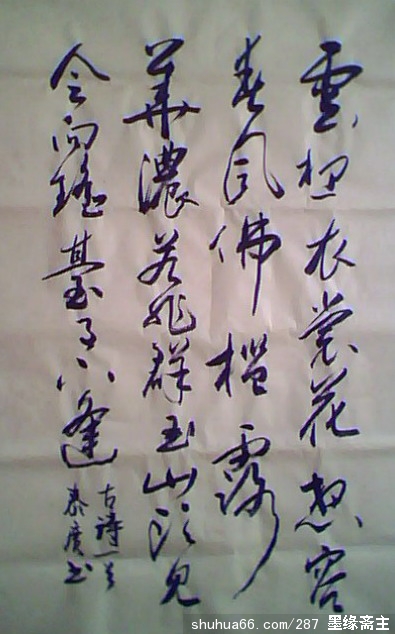 雲想衣裳花想容
春风佛槛露
華濃若非群玉山头见
会向瑶臺月下逢
古詩一首
泰廣书
shuhua66.com/287 墨缘斋主